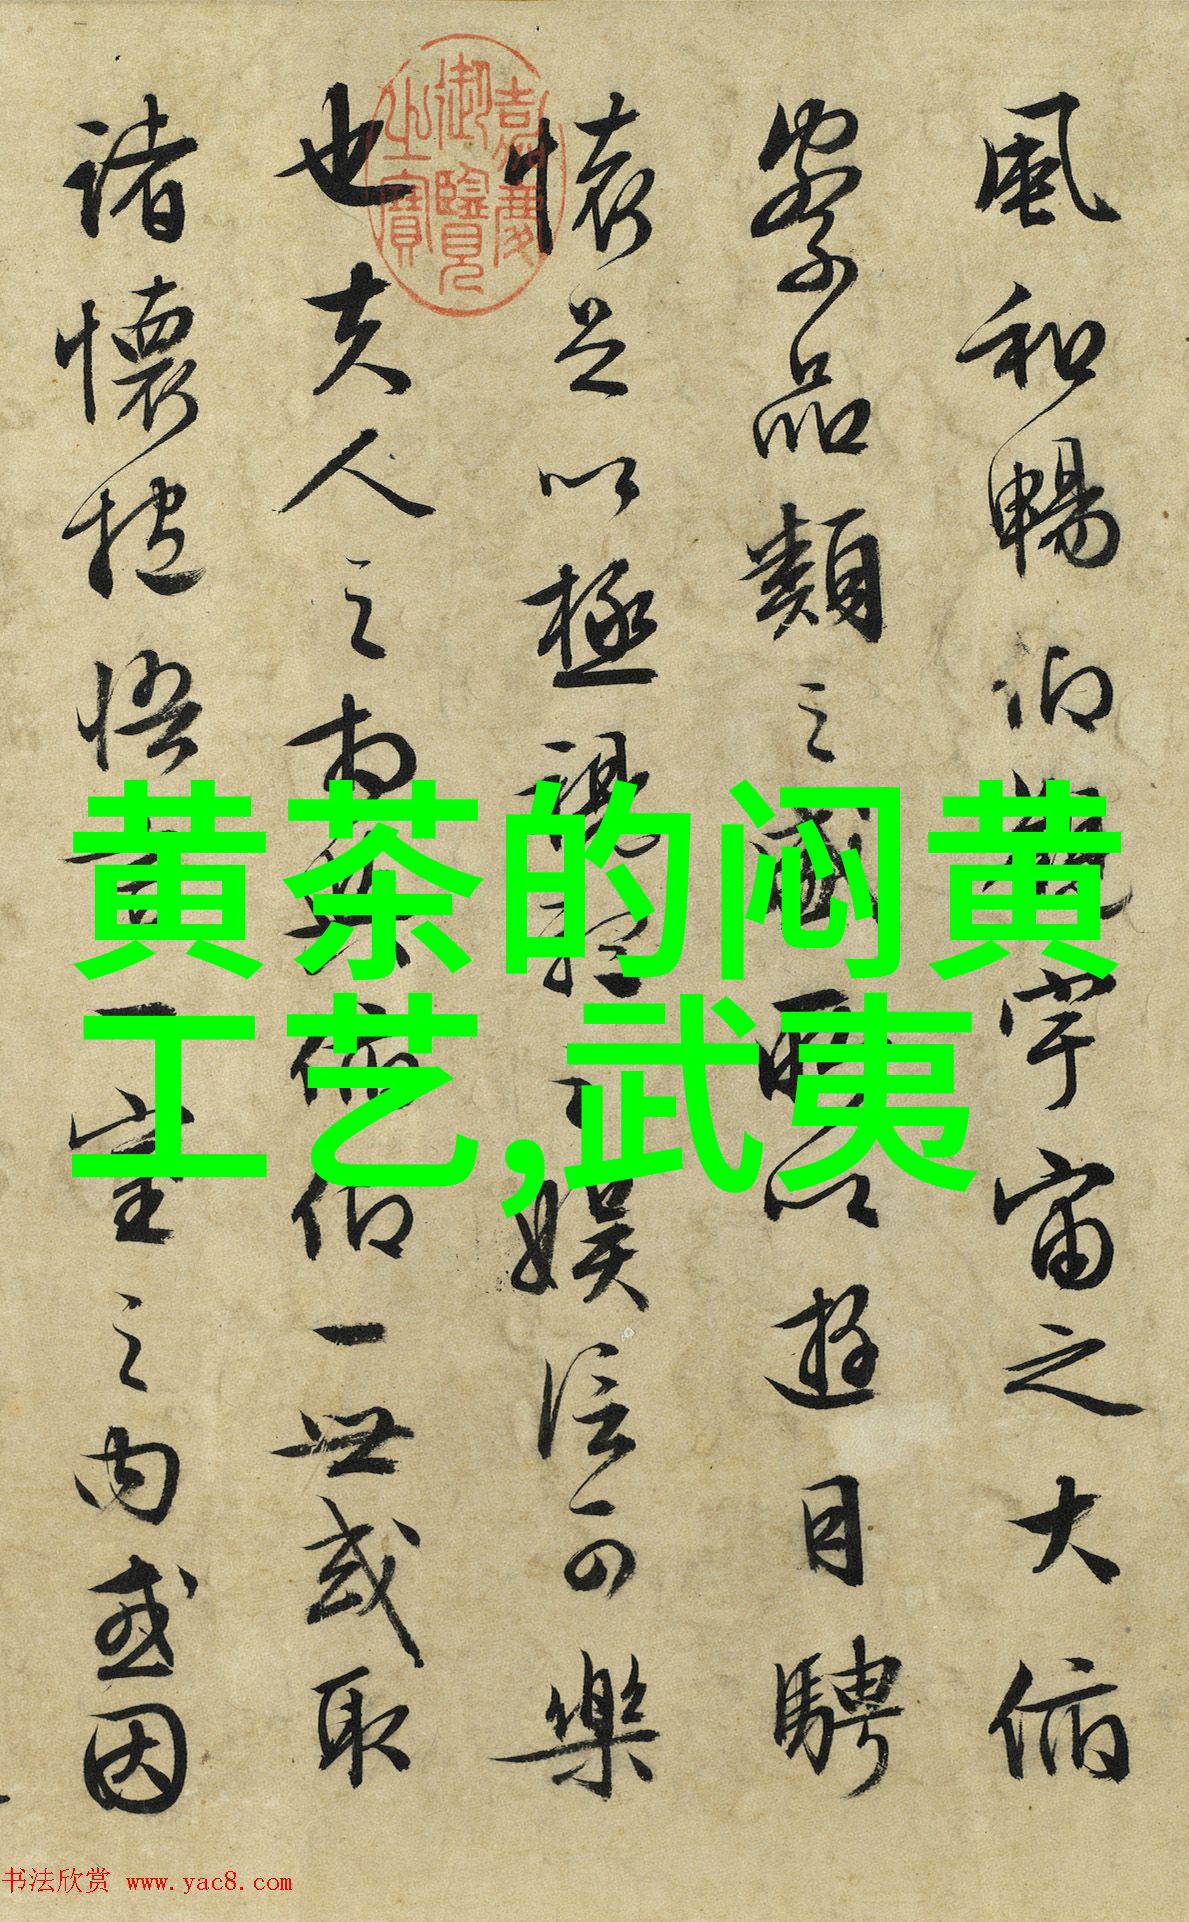 嘉慶
御覽
之寶
風和暢仰觀宇宙之大俯
察品類之盛所以遊目騁
懷足以極視聽之娛信可樂
也夫人之相與俯仰一世或取
諸懷抱悟言一室之內或因
黄茶的闷黄
工艺,武夷
书法欣赏 www.yac8.com